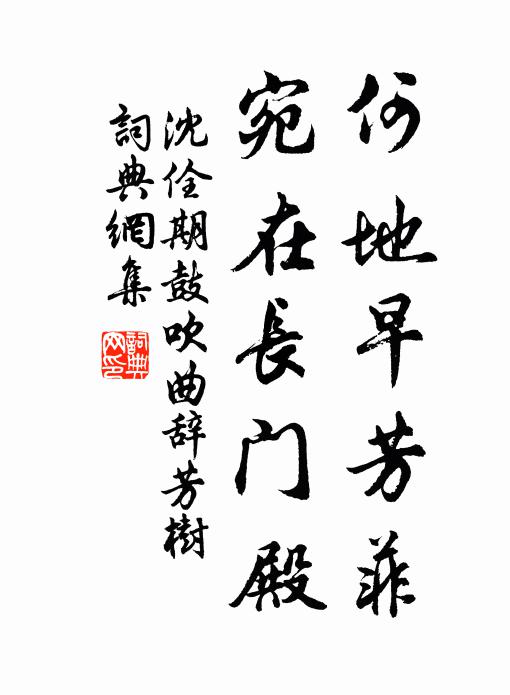 何地早芳菲
宛在長门殿
沈佺期鼓吹曲辞芳樹
詞典網集
詞典
网印